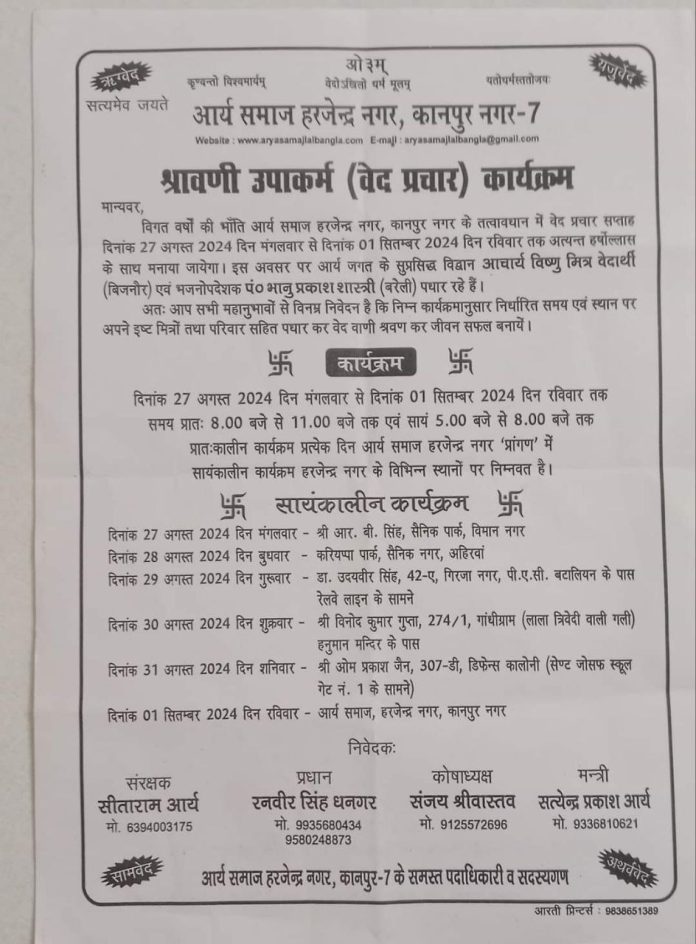 ओ३म्
ऋग्वेद
कृण्वन्तो विश्वमार्यम्
वेदोऽखिलो धर्म मूलम्
यतोधर्मस्ततोजयः
यजुर्वेद
सत्यमेव जयते
आर्य समाज हरजेन्द्र नगर, कानपुर नगर-7
Website : www.aryasamajlalbangla.com E-mail : aryasamajlalbangla@gmail.com
श्रावणी उपाकर्म (वेद प्रचार) कार्यक्रम
मान्यवर,
विगत वर्षों की भाँति आर्य समाज हरजेन्द्र नगर, कानपुर नगर के तत्वावधान में वेद प्रचार सप्ताह
दिनांक 27 अगस्त 2024 दिन मंगलवार से दिनांक 01 सितम्बर 2024 दिन रविवार तक अत्यन्त हर्षोल्लास
के साथ मनाया जायेगा। इस अवसर पर आर्य जगत के सुप्रसिद्ध विद्वान आचार्य विष्णु मित्र वेदार्थी
(बिजनौर) एवं भजनोपदेशक पं० भानु प्रकाश शास्त्री (बरेली) पधार रहे हैं।
अतः आप सभी महानुभावों से विनम्र निवेदन है कि निम्न कार्यक्रमानुसार निर्धारित समय एवं स्थान पर
अपने इष्ट मित्रों तथा परिवार सहित पधार कर वेद वाणी श्रवण कर जीवन सफल बनायें।
कार्यक्रम
दिनांक 27 अगस्त 2024 दिन मंगलवार से दिनांक 01 सितम्बर 2024 दिन रविवार तक
समय प्रातः 8.00 बजे से 11.00 बजे तक एवं सायं 5.00 बजे से 8.00 बजे तक
प्रातःकालीन कार्यक्रम प्रत्येक दिन आर्य समाज हरजेन्द्र नगर ‘प्रांगण’ में
सायंकालीन कार्यक्रम हरजेन्द्र नगर के विभिन्न स्थानों पर निम्नवत है।
सायंकालीन कार्यक्रम
दिनांक 27 अगस्त 2024 दिन मंगलवार - श्री आर. बी. सिंह, सैनिक पार्क, विमान नगर
दिनांक 28 अगस्त 2024 दिन बुधवार - करियप्पा पार्क, सैनिक नगर, अहिरवां
दिनांक 29 अगस्त 2024 दिन गुरूवार - डा. उदयवीर सिंह, 42-ए, गिरजा नगर, पी.ए.सी. बटालियन के पास
रेलवे लाइन के सामने
दिनांक 30 अगस्त 2024 दिन शुक्रवार - श्री विनोद कुमार गुप्ता, 274/1, गांधीग्राम (लाला त्रिवेदी वाली गली)
हनुमान मन्दिर के पास
दिनांक 31 अगस्त 2024 दिन शनिवार - श्री ओम प्रकाश जैन, 307-डी, डिफेन्स कालोनी (सेण्ट जोसफ स्कूल
गेट नं. 1 के सामने)
दिनांक 01 सितम्बर 2024 दिन रविवार - आर्य समाज, हरजेन्द्र नगर, कानपुर नगर
निवेदकः
संरक्षक
सीताराम आर्य
मो. 6394003175
प्रधान
रनवीर सिंह धनगर
मो. 9935680434
9580248873
कोषाध्यक्ष
संजय श्रीवास्तव
मो. 9125572696
मन्त्री
सत्येन्द्र प्रकाश आर्य
मो. 9336810621
सामवेद
आर्य समाज हरजेन्द्र नगर, कानपुर-7 के समस्त पदाधिकारी व सदस्यगण
अथर्ववेद
आरती प्रिन्टर्स : 9838651389